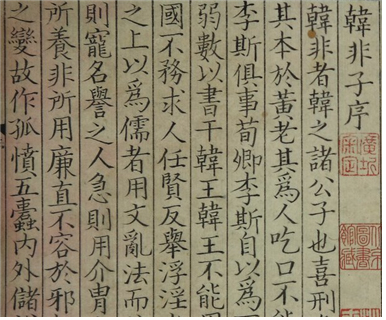 韓非子序
韓非者韓之諸公子也喜刑
其本於黃老其爲人吃口不能
李斯俱事荀卿李斯自以爲
弱數以書干韓王韓王不能用
國不務求人任賢反舉浮淫
之上以爲儒者用文亂法而
則寵名譽之人急則用介冑
所養非所用廉直不容於邪
之變故作孤憤五蠹内外儲